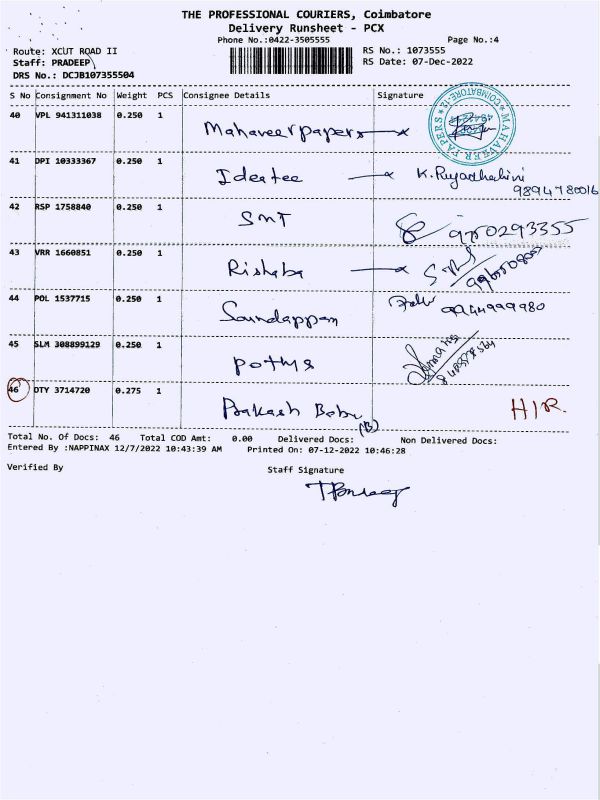 THE PROFESSIONAL COURIERS, Coimbatore
Delivery Runsheet - PCX
Phone No.:0422-3505555 Page No.:4
Route: XCUT ROAD II RS No.: 1073555
Staff: PRADEEP RS Date: 07-Dec-2022
DRS No.: DCJB107355504
S No Consignment No Weight PCS Consignee Details Signature
40 VPL 941311038 0.250 1 Mahaveer papers
MAHAVEER PAPERS COIMBATORE-12
41 DPI 10333367 0.250 1 Ideatee
9894780016
42 RSP 1758840 0.250 1 SMT 9750293355
43 VRR 1660851 0.250 1 Rishaba
44 POL 1537715 0.250 1 Soundappan 9944999980
45 SLM 308899129 0.250 1 Pothys
46 DTY 3714720 0.275 1 Prakash Babu (B) H/R
Total No. Of Docs: 46 Total COD Amt: 0.00 Delivered Docs: Non Delivered Docs:
Entered By :NAPPINAX 12/7/2022 10:43:39 AM Printed On: 07-12-2022 10:46:28
Verified By Staff Signature